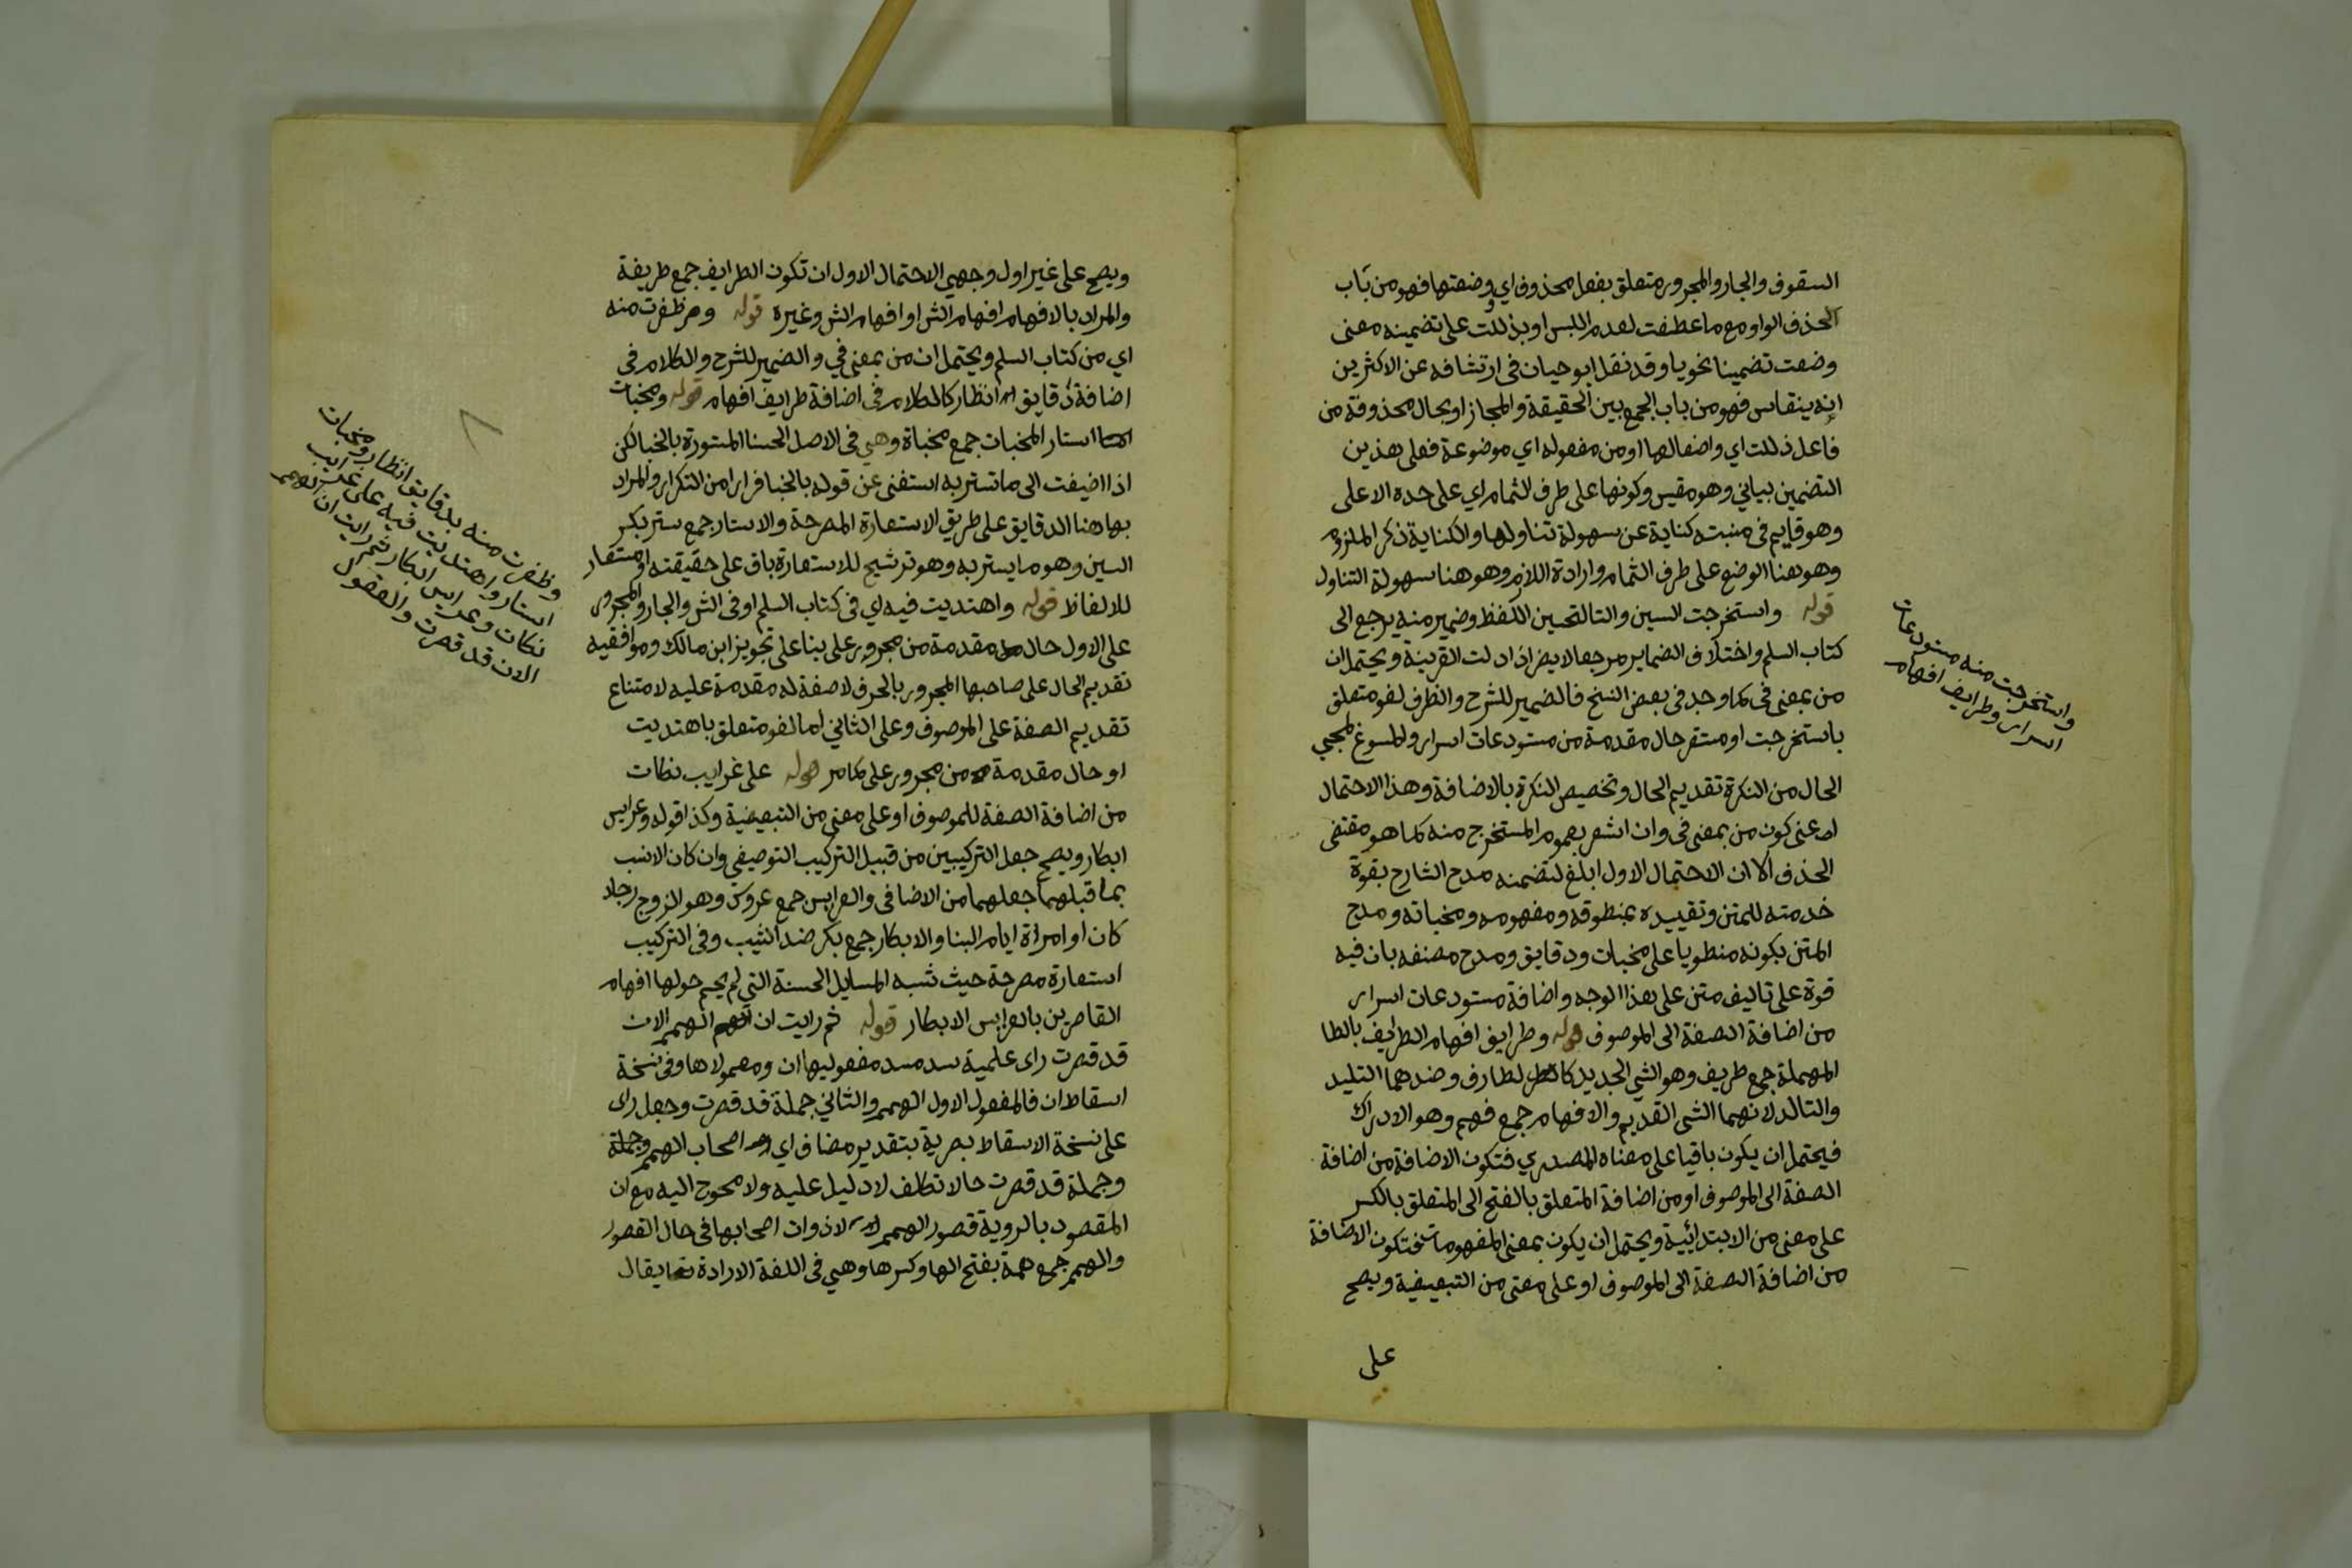 السقوف والجار والمجرور متعلق بفعل محذوف اي وضعتها فهو من باب
الحذف الواو مع ما عطفت لعدم اللبس او بذللت على تضمينه معنى
وضعت تضمينا نحويا وقد نقل ابو حيان في ارتشافه عن الاكثرين
انه ينقاس فهو من باب الجمع بين الحقيقة والمجاز او بحال محذوفة من
فاعل ذللت اي واضعا لها او من مفعوله اي موضوعة فعلى هذين
التضمين بياني وهو مقيس وكونها على طرف الثمام اي على حده الاعلى
وهو قايم في منبته كناية عن سهولة تناولها والكناية ذكر الملزوم
وهو هنا الوضع على طرف الثمام وارادة اللازم وهو هنا سهولة التناول
قوله واستخرجت السين والتا لتحسين اللفظ وضمير منه يرجع الى
كتاب السلم واختلاف الضماير مرجعا لا يضر اذا دلت القرينة ويحتمل ان
من بمعنى في كما وجد في بعض النسخ فالضمير للشرح والظرف لغو متعلق
باستخرجت او مستقر حال مقدمة من مستودعات اسرار والمسوغ لمجيي
الحال من النكرة تقديم الحال وتخصيص النكرة بالاضافة وهذا الاحتمال
اعني كون من بمعنى في وان اشعر بعموم المستخرج منه كما هو مقتضى
الحذف الا ان الاحتمال الاول ابلغ لتضمنه مدح الشارح بقوة
خدمته للمتن وتقييده بمنطوقه ومفهومه ومخباته ومدح
المتن بكونه منطويا على مخبات ودقايق ومدح مصنفه بان فيه
قوة على تاليف متن على هذا الوجه واضافة مستودعات اسرار
من اضافة الصفة الى الموصوف قوله وطرايف افهام الطرايف بالطا
المهملة جمع طريف وهو الشي الجديد كالطارف وضدهما التليد
والتالد لانهما الشي القديم والافهام جمع فهم وهو الادراك
فيحتمل ان يكون باقيا على معناه المصدري فتكون الاضافة من اضافة
الصفة الى الموصوف او من اضافة المتعلق بالفتح الى المتعلق بالكسر
على معنى من الابتدائية ويحتمل ان يكون بمعنى المفهومات فتكون الاضافة
من اضافة الصفة الى الموصوف او على معنى من التبعيضية ويصح
على
واستخرجت منه مستودعات
اسرار وطرايف افهام
ويصح على غير اول وجهي الاحتمال الاول ان تكون الطرايف جمع طريفة
والمراد بالافهام افهام الش او افهام الش وغيره قوله وظفرت منه
اي من كتاب السلم ويحتمل ان من بمعنى في والضمير للشرح والكلام في
اضافة دقايق انظار كالكلام في اضافة طرايف افهام قوله ومخبات
استار المخبات جمع مخباة وهي في الاصل الحسنا المستورة بالخبا لكن
اذا اضيفت الى ما تستر به استغنى عن قوله بالخبا فرارا من التكرار والمراد
بها هنا الدقايق على طريق الاستعارة المصرحة والاستار جمع ستر بكسر
السين وهو ما يستر به وهو ترشيح للاستعارة باق على حقيقته او مستعار
للالفاظ قوله واهتديت فيه اي في كتاب السلم او في الش والجار والمجرور
على الاول حال مقدمة من مجرور على بنا على تجويز ابن مالك وموافقيه
تقديم الحال على صاحبها المجرور بالحرف لا صفة له مقدمة عليه لامتناع
تقديم الصفة على الموصوف وعلى الثاني اما لغو متعلق باهتديت
او حال مقدمة من مجرور على كما مر قوله على غرايب نكات
من اضافة الصفة للموصوف او على معنى من التبعيضية وكذا قوله وعرايس
ابكار ويصح جعل التركيبين من قبيل التركيب التوصيفي وان كان الانسب
بما قبلهما جعلهما من الاضافي والعرايس جمع عروس وهو الزوج رجلا
كان او امراة ايام البنا والابكار جمع بكر ضد الثيب وفي التركيب
استعارة مصرحة حيث شبه المسايل الحسنة التي لم يحم حولها افهام
القاصرين بالعرايس الابكار قوله ثم رايت ان الهمم الان
قد قصرت راى علمية سد مسد مفعوليها ان ومعمولاها وفي نسخة
اسقاط ان فالمفعول الاول الهمم والثاني جملة قد قصرت وجعل راى
على نسخة الاسقاط بصرية بتقدير مضاف اي اصحاب الهمم وجملة
وجملة قد قصرت حالا تكلف لا دليل عليه ولا محوج اليه مع ان
المقصود بالروية قصور الهمم لا ذوات اصحابها في حال القصور
والهمم جمع همة بفتح الها وكسرها وهي في اللغة الارادة يقال
وظفرت منه بدقايق انظار ومخبات
استار واهتديت فيه على غرايب
نكات وعرايس ابكار ثم رايت ان الهمم
الان قد قصرت والعقول